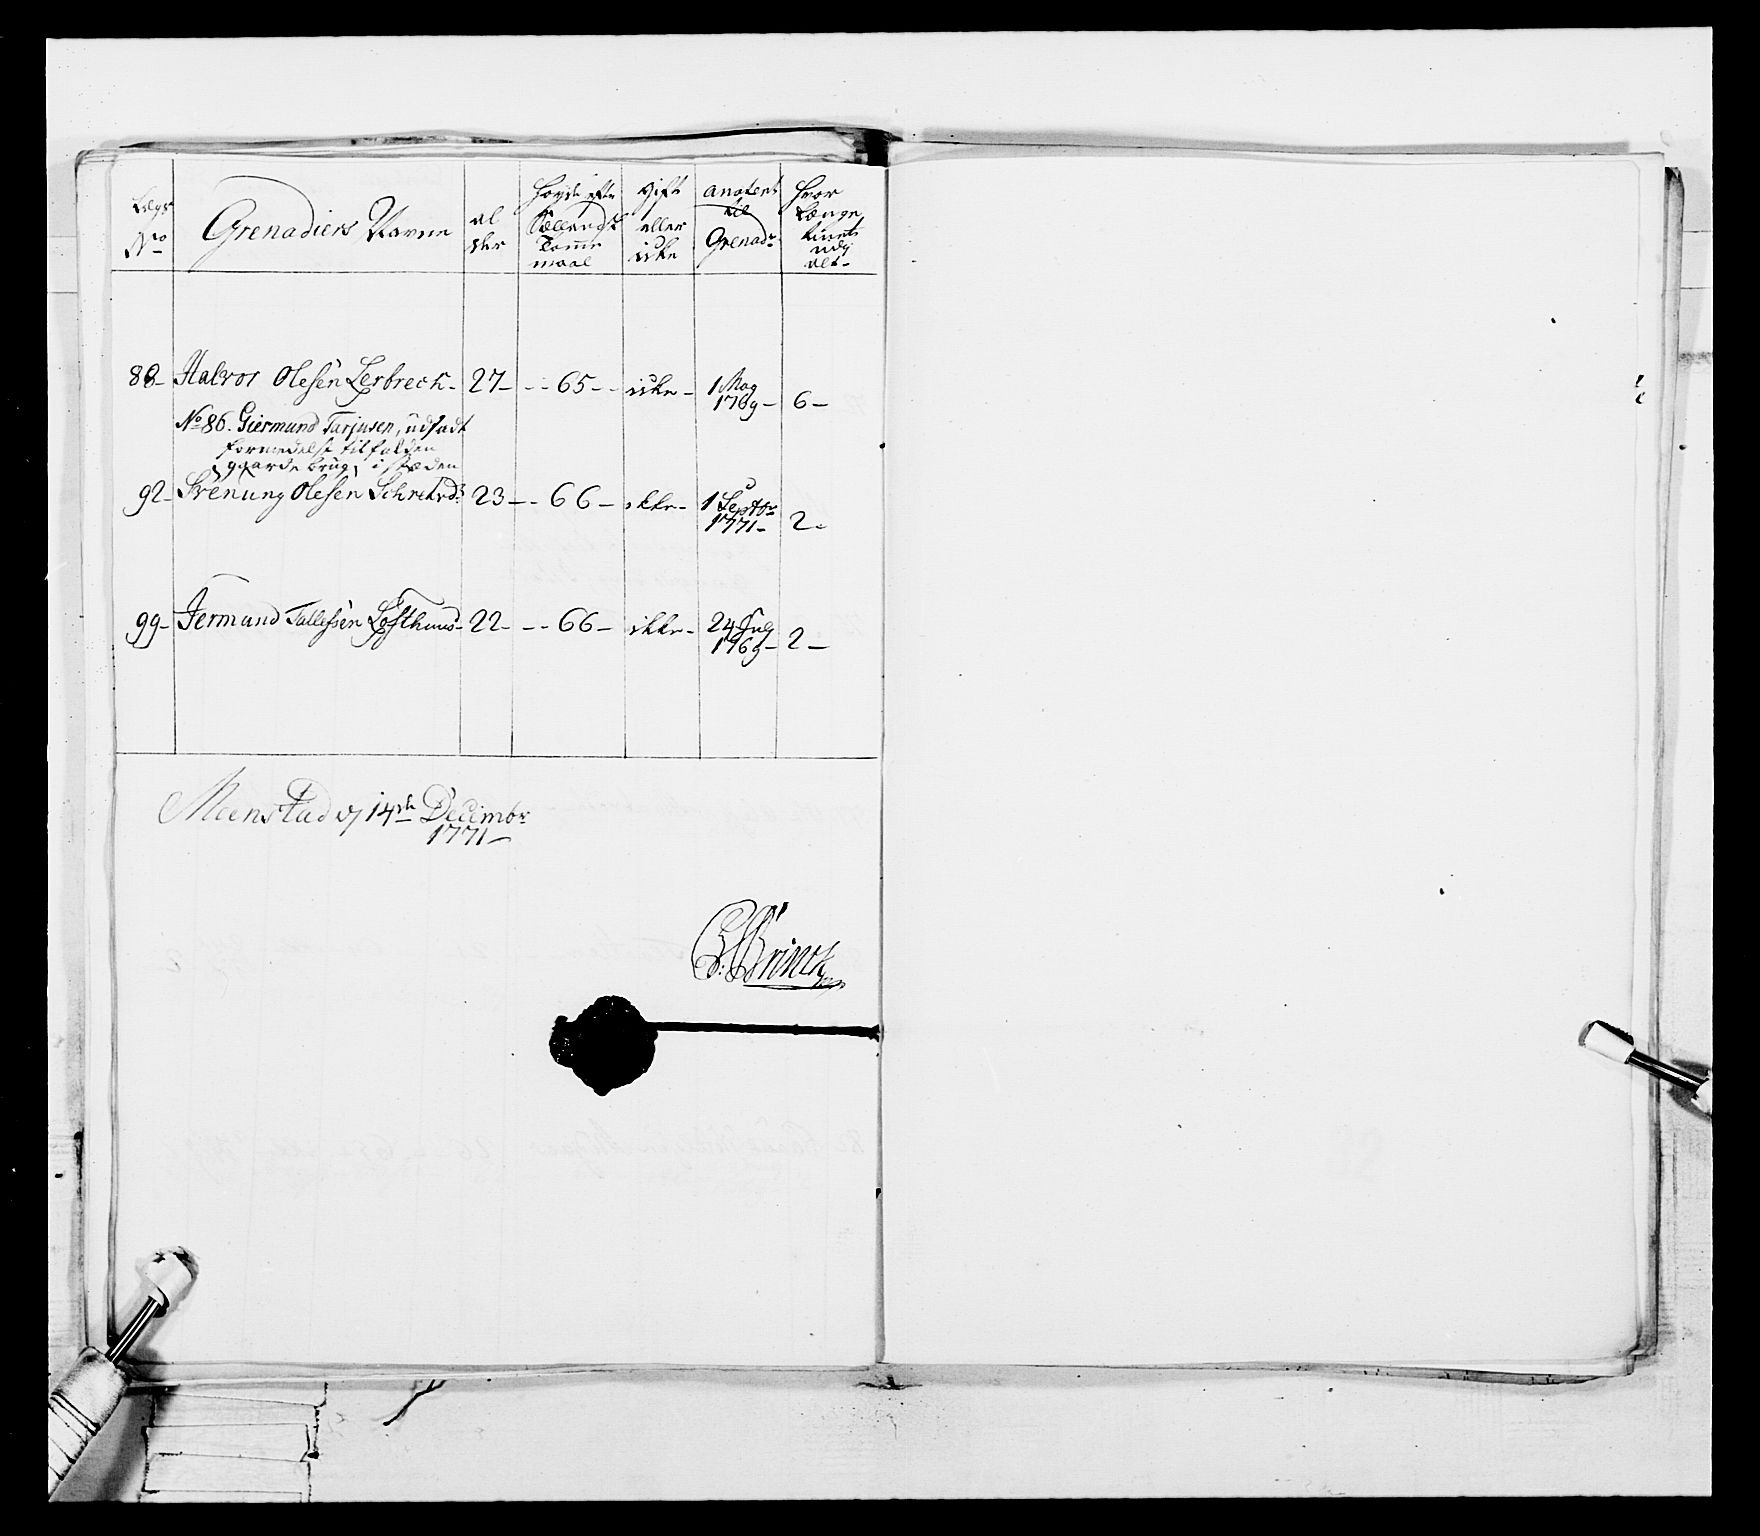 Lægs No Grenadiers Navne al der Høyde efter Sællandsk Tomme maal gift eller icke anotert til Grenadr Hvor længe tient udy alt
88 Halvor Olesen Lerbreck 27 65 icke 1 May 1769 6
No 86. Giermund Tarjusen, udsadt
formedelst tilfalden
gaarde brug, i stæden
92 Svenung Olesen 23 66 ikke 1 Septbr 1771 2
99 Jermund Tallefsen Lofthuus 22 66 ikke 24 July 1769 2
Meenstad d 14de Decembr
1771
Brinck